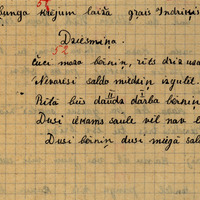 57
bunga krējum laiža grais Indriķis
Dziesmiņa.
52
čuči maza bērniņ, rīts driz usa
Nevarēsi saldo miedziņ izgulēt.
Rītā būs daudza darba bērniņ
II I
Dusi iekams saule vēl nav l
Dusi bērniņ dusi miegā sald